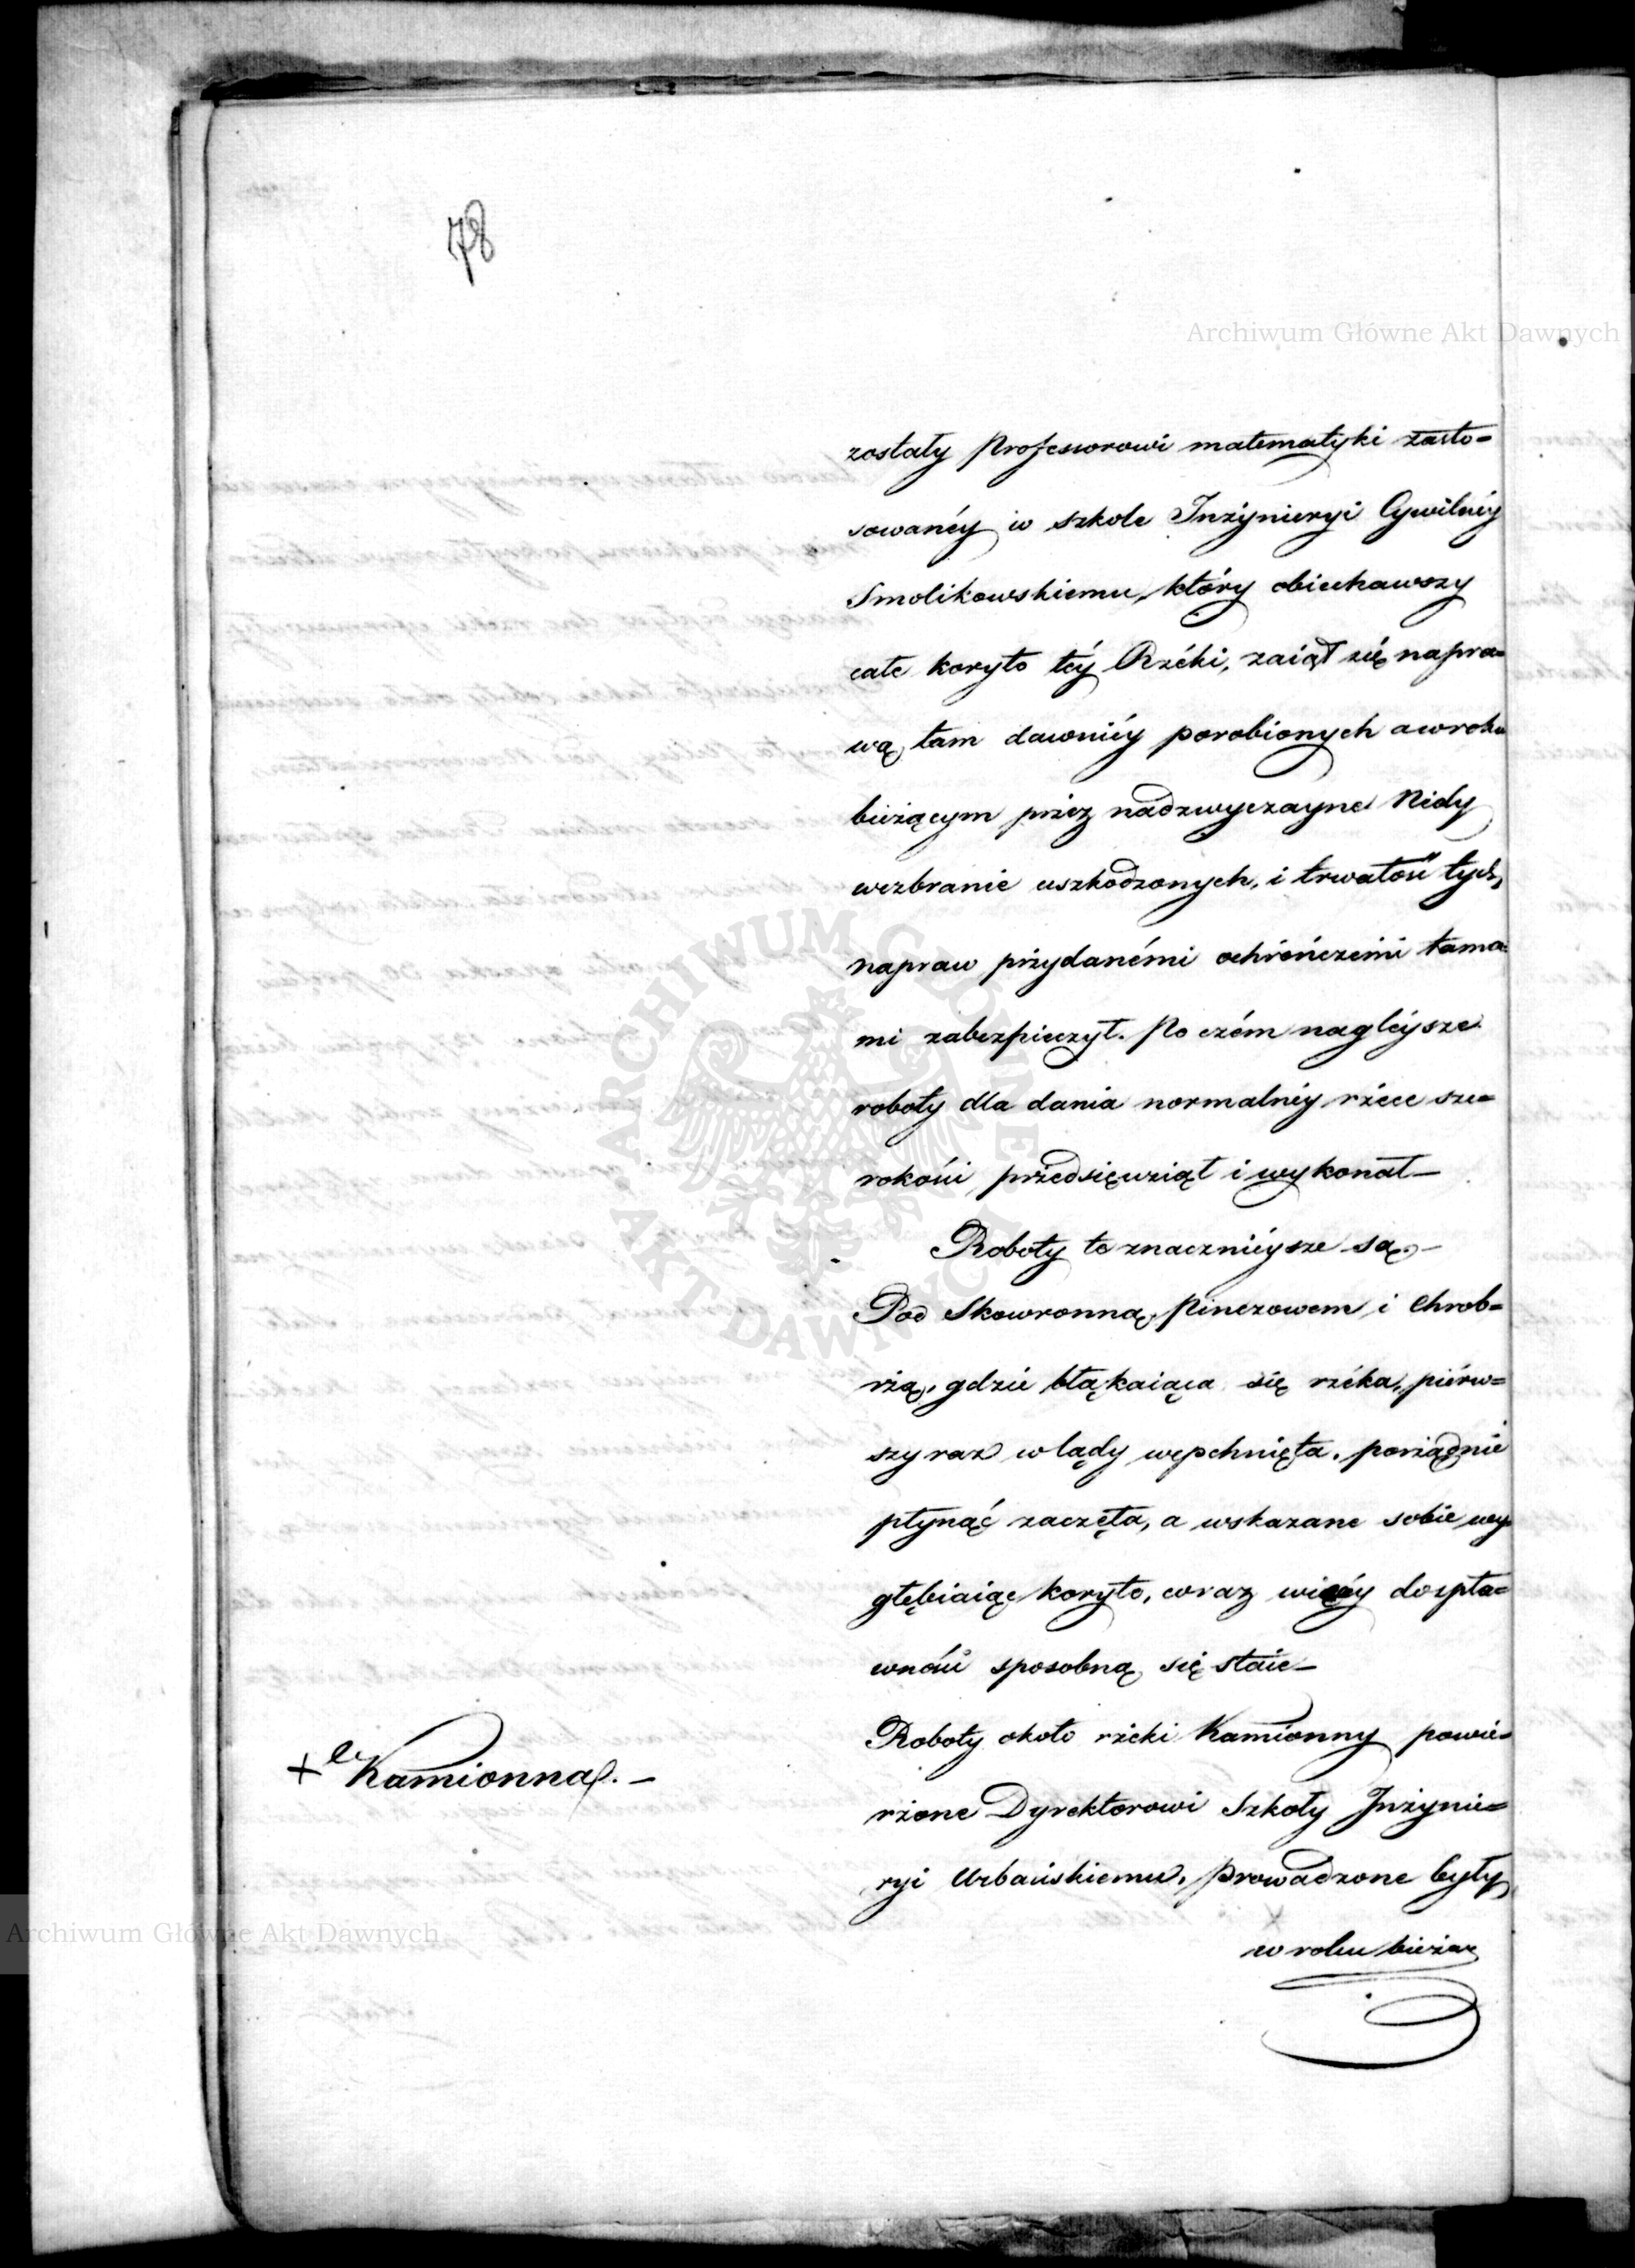 78
Archiwum Główne Akt Dawnych
zostały Professorowi matematyki zasto=
sowanéy w szkole Inżynieryi Cywilnéy
Smolikowskiemu, który obiechawszy
całe koryto téy Rzéki, zaiął się napra=
wą tam dawniéy porobionych a w roku
bieżącym przez nadzwyczayne Nidy
wezbranie uszkodzonych, i trwałość tych
napraw przydanémi ochrończemi tama=
mi zabezpieczył. Po czém nagléysze
roboty dla dania normalnéy rzéce sze=
rokości przedsięwziął i wykonał –
Roboty te znacznieysze są –
Pod Skowronną, Pinczowem i Chrob=
rzą, gdzie błąkaiąca się rzéka, piérw=
szy raz w lądy wepchnięta, porządnie
płynąć zaczęła, a wskazane sobie wy=
głębiaiąc koryto, coraz wiecéy do spła=
wności sposobną się staie –
Roboty około rzéki Kamionny powie=
rzone Dyrektorowi Szkoły Inżynie=
ryi Urbańskiemu, prowadzone były
w roku bieżąc
+ e, Kamionna. –
ARCHIWUM GŁÓWNE
AKT DAWNYCH
Archiwum Główne Akt Dawnych